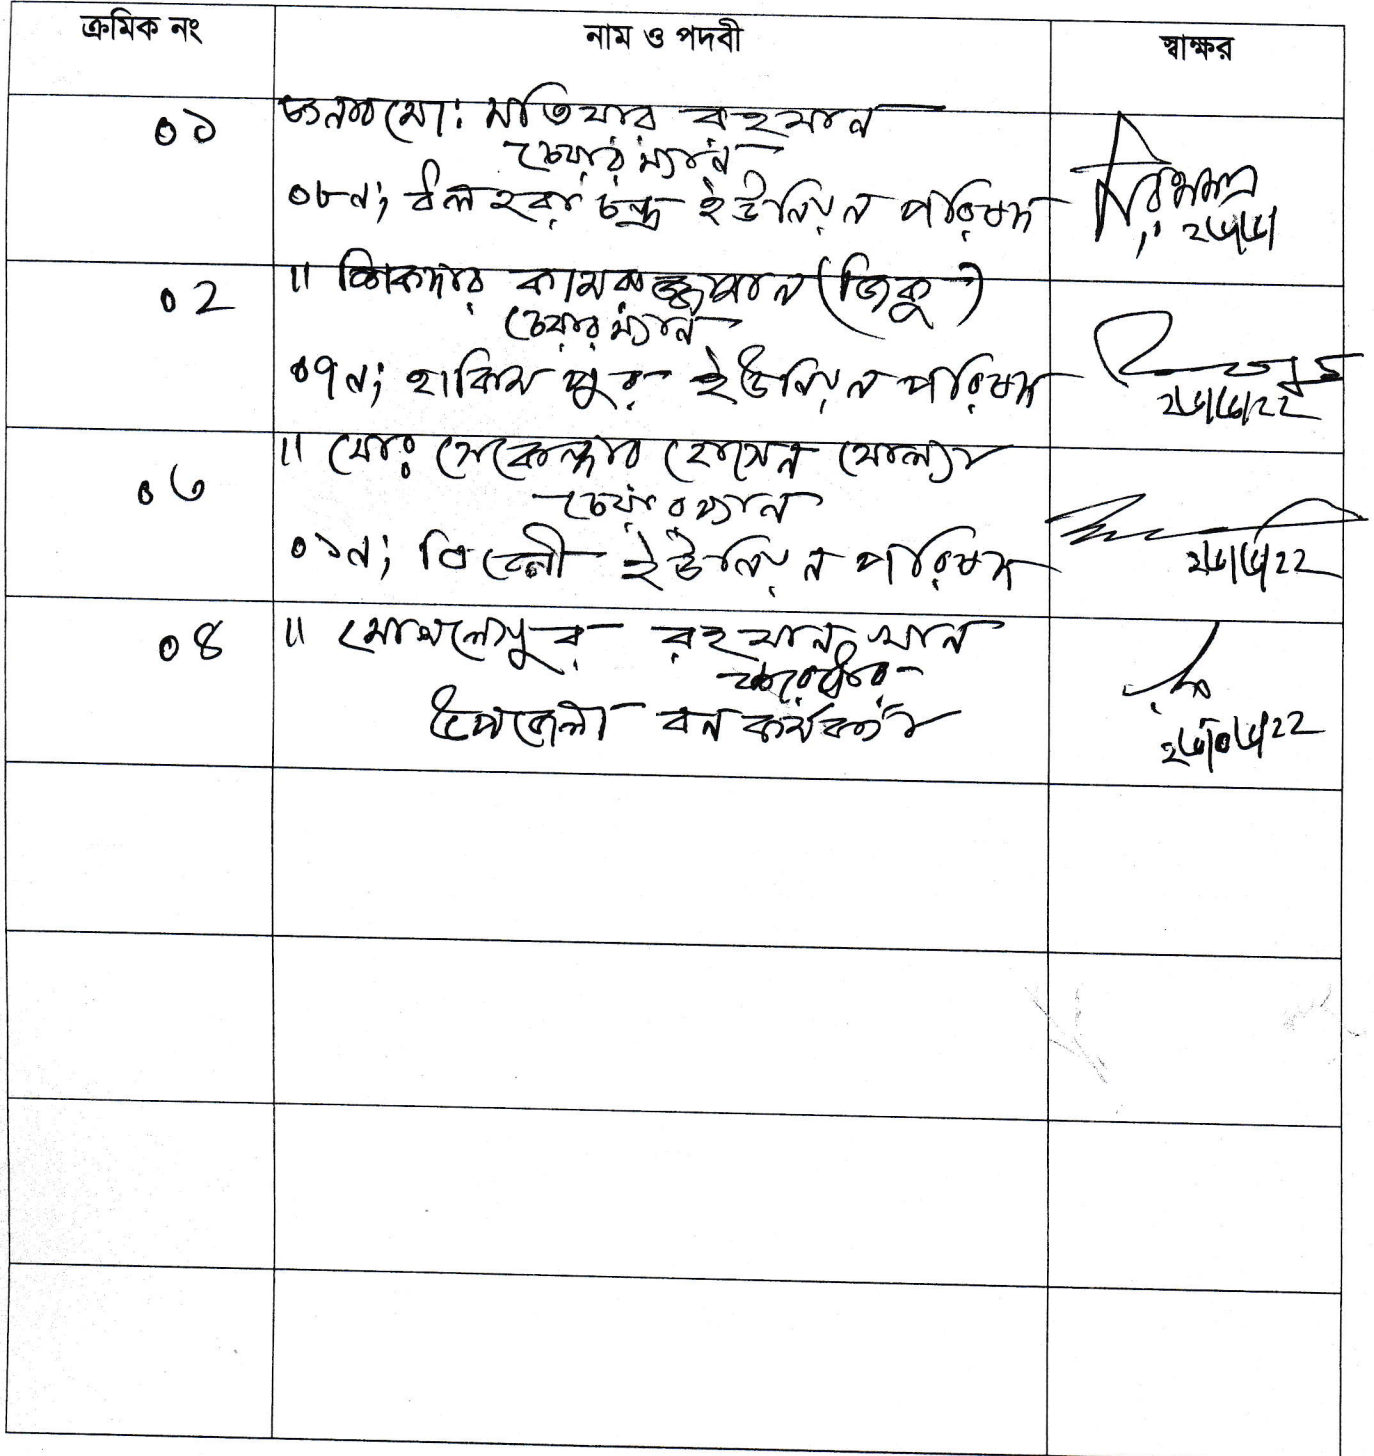 ক্রমিক নং নাম ও পদবী স্বাক্ষর
০১ জনাব মো: মতিয়ার রহমান
চেয়ারম্যান
০৮নং ইউনিয়ন পরিষদ
০২ " শিকদার কামরুজ্জামান (জিকু)
চেয়ারম্যান
০৭নং হাকিমপুর ইউনিয়ন পরিষদ
২৬/৬/২২
০৩ " মোঃ সেকেন্দার হোসেন মোল্যা
চেয়ারম্যান
০১নং ত্রিবেনী ইউনিয়ন পরিষদ
২৬/৬/২২
০৪ " মোখলেসুর রহমান
ফরেষ্টার
উপজেলা বন কর্মকর্তা
২৬/০৬/২২